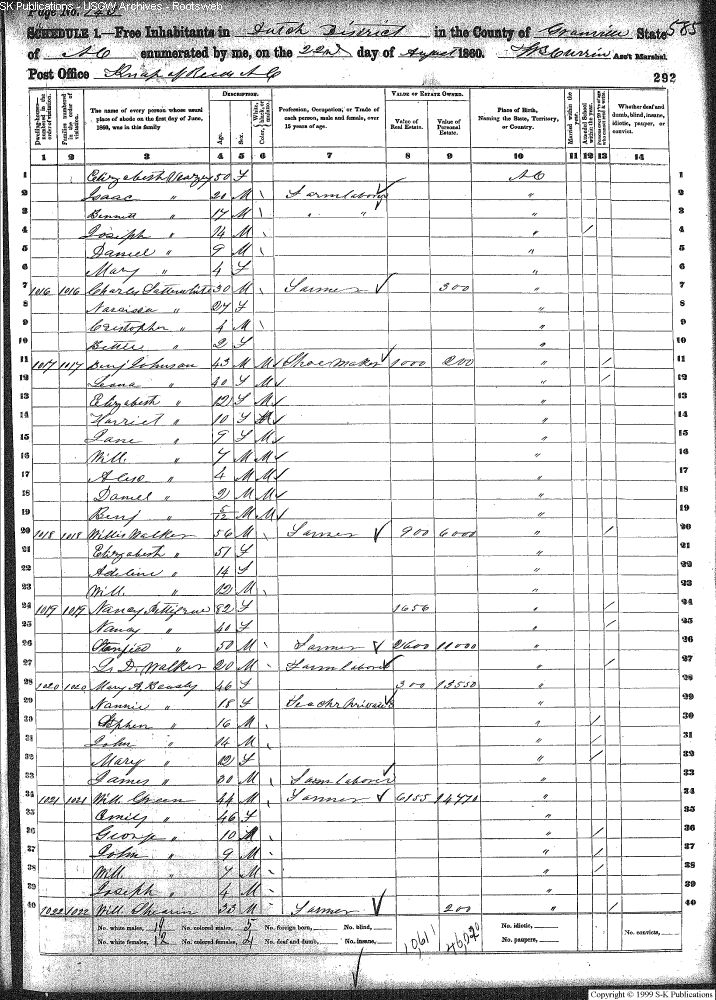 SK Publications - USGW Archives - Rootsweb
Page No. 140
585
SCHEDULE 1.—Free Inhabitants in Dutch District in the County of Granville State
of N C enumerated by me, on the 22nd day of August 1860. Ass't Marshal.
Post Office Knap of Reeds N C
292
Dwelling-houses—numbered in the order of visitation.
Families numbered in the order of visitation.
The name of every person whose usual place of abode on the first day of June, 1860, was in this family
DESCRIPTION.
Age.
Sex.
Color, White, black, or mulatto.
Profession, Occupation, or Trade of each person, male and female, over 15 years of age.
VALUE OF ESTATE OWNED.
Value of Real Estate.
Value of Personal Estate.
Place of Birth, Naming the State, Territory, or Country.
Married within the year.
Attended School within the year.
Persons over 20 y'rs of age who cannot read & write.
Whether deaf and dumb, blind, insane, idiotic, pauper, or convict.
1 2 3 4 5 6 7 8 9 10 11 12 13 14
1 Elizabeth 50 F N C 1
2 Isaac " 20 M Farm laborer " 2
3 Bennett " 17 M " " " 3
4 Joseph " 14 M " / 4
5 Daniel " 9 M " 5
6 Mary " 4 F " 6
7 1016 1016 Charles Satterwhite 30 M Farmer 300 " 7
8 Narcissa " 27 F " 8
9 Cristopher " 4 M " 9
10 Bettie " 2 F " 10
11 1017 1017 Benj Johnson 43 M M Shoe Maker 1000 200 " / 11
12 " 40 F M " / 12
13 Elizabeth " 12 F M " 13
14 Harriet " 10 F M " 14
15 Jane " 9 F M " 15
16 Will " 7 M M " 16
17 " 4 M M " 17
18 Daniel " 2 M M " 18
19 Benj " 5/12 M M " 19
20 1018 1018 Willis Walker 56 M Farmer 900 6000 " / 20
21 Elizabeth " 51 F " 21
22 Adeline " 14 F " 22
23 Will " 12 M " 23
24 1019 1019 Nancy 82 F 1656 " / 24
25 Nancy " 40 F " / 25
26 " 50 M Farmer 2600 11000 " 26
27 D. Walker 20 M Farm laborer " / 27
28 1020 1020 Mary A 46 F 300 13550 " 28
29 Nannie " 18 F Teachr Private " 29
30 Stephen " 16 M " / 30
31 John " 14 M " / 31
32 Mary " 12 F " / 32
33 James " 30 M Farm laborer " 33
34 1021 1021 Will Green 44 M Farmer 6155 14770 " 34
35 Emily " 46 F " 35
36 George " 10 M " / 36
37 John " 9 M " / 37
38 Will " 7 M " / 38
39 Joseph " 4 M " 39
40 1022 1022 Will Shearin 33 M Farmer 200 " / 40
No. white males, 19 No. colored males, 5 No. foreign born, No. blind, No. idiotic,
No. white females, 12 No. colored females, 4 No. deaf and dumb, No. insane, No. paupers, No. convicts,
Copyright © 1999 S-K Publications